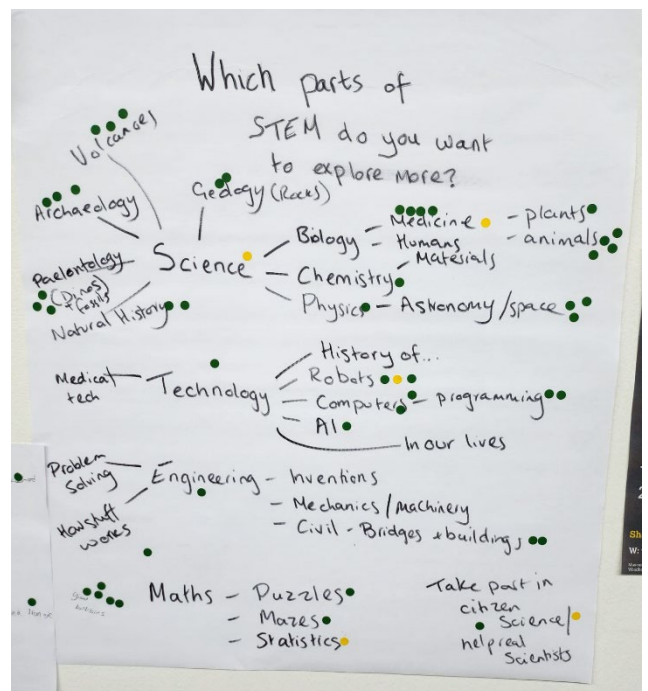 Which parts of
STEM do you want
to explore more?
Volcanoes
Geology (Rocks)
Archaeology
Science
Paelontology
(Dinos
+ fossils
Natural History
Biology
- Medicine
- Humans
- plants
- animals
Chemistry
Materials
Physics - Astronomy/space
Medical
tech
Technology
History of...
Robots
Computers - programming
AI
In our lives
Problem
Solving
How stuff
works
Engineering - Inventions
- Mechanics/machinery
- Civil - Bridges + buildings
Maths - Puzzles
- Mazes
- Statistics
Take part in
citizen
Science/
help real
Scientists
Sh
W: